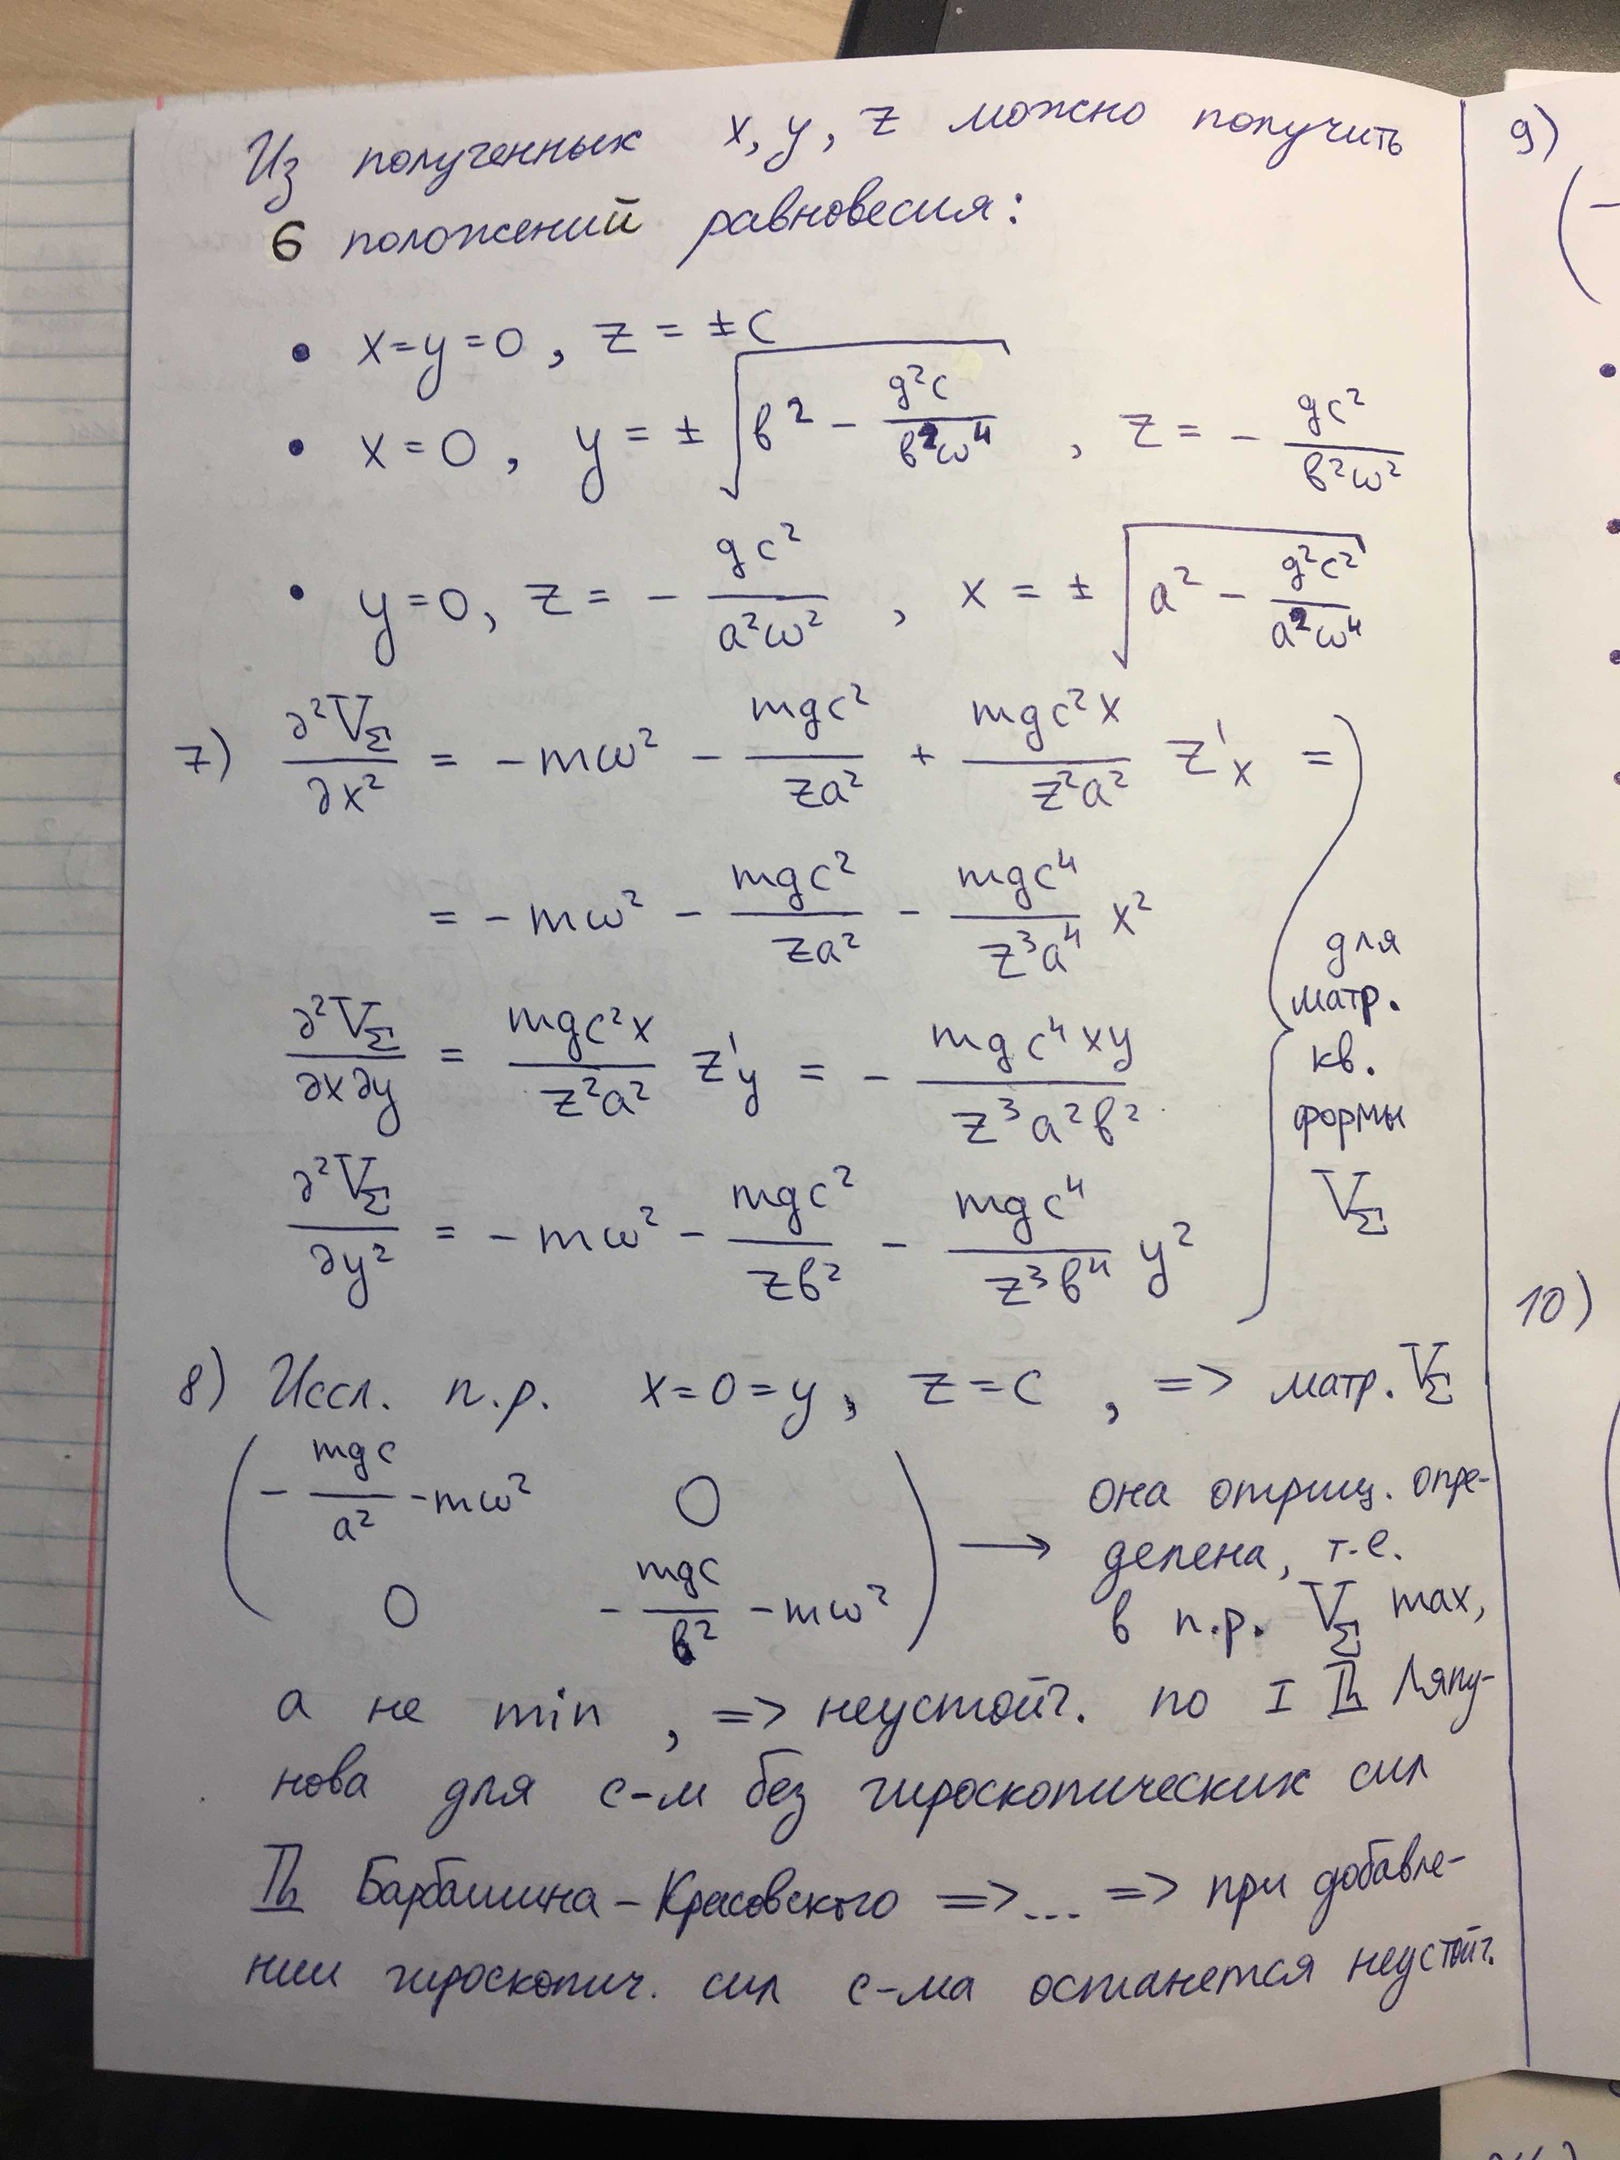 Из полученных x, y, z можно получить
6 положений равновесия:
• x=y=0, z = ±c
• x=0, y = ± √(b² − g²c/(b²ω⁴)), z = − gc²/(b²ω²)
• y=0, z = − gc²/(a²ω²), x = ± √(a² − g²c²/(a²ω⁴))
7) ∂²V_Σ/∂x² = −mω² − mgc²/(za²) + mgc²x/(z²a²) z'ₓ =
= −mω² − mgc²/(za²) − mgc⁴/(z³a⁴) x²
∂²V_Σ/∂x∂y = mgc²x/(z²a²) z'_y = − mgc⁴xy/(z³a²b²)
∂²V_Σ/∂y² = −mω² − mgc²/(zb²) − mgc⁴/(z³b⁴) y²
для
матр.
кв.
формы
V_Σ
8) Иссл. п.р. x=0=y, z=c, => матр. V_Σ
( − mgc/a² − mω² 0
0 − mgc/b² − mω² )
→ она отриц. опре-
делена, т.е.
в п.р. V_Σ max,
а не min, => неустойч. по I Th Ляпу-
нова для с-м без гироскопических сил
Th Барбашина – Красовского => ... => при добавле-
нии гироскопич. сил с-ма останется неустойч.
9)
(−
10)